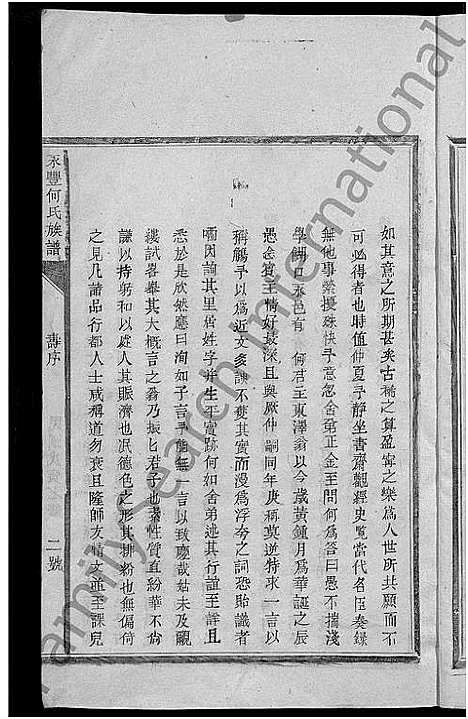 如其意之所期甚矣古稀之算盈寧之樂爲人世所共願而不
可必得者也時值仲夏予靜坐書齋觀經史覽當代名臣奏錄
無他事縈擾殊快予意忽舍弟正金至問何爲答曰愚不揣淺
學餬口永邑有 何君主東澤翁以今歲黃鍾月爲華誕之辰
愚念賓主情好最深且與厥仲 嗣同年庚稱莫逆特求一言以
稱觴予以爲近文多諛不獲其實而漫爲浮夸之詞恐貽識者
嗤因諭其里居姓字并生平實跡何如舍弟述其行誼至詳且
悉於是欣然應曰洵如子言予能無一言以致慶哉姑未及覼
縷試畧舉其大概言之翁乃振 君子也素性質直紛華不尙
謙以持躬和以處人其賑濟也泯德色之形其排紛也無偏倚
之見凡諸品行都人士咸稱道勿衰且隆師友 文並至課兒
永豐何氏族譜
壽序
二號
Family Search International